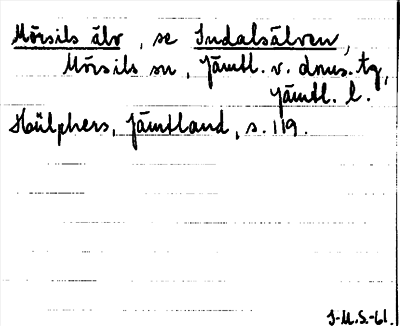 Mörsils älv, se Indalsälven,
Mörsils sn, Jämtl. v. doms. tg,
Jämtl. l.
Hülphers, Jämtland, s. 119.
J-M.S.-61.